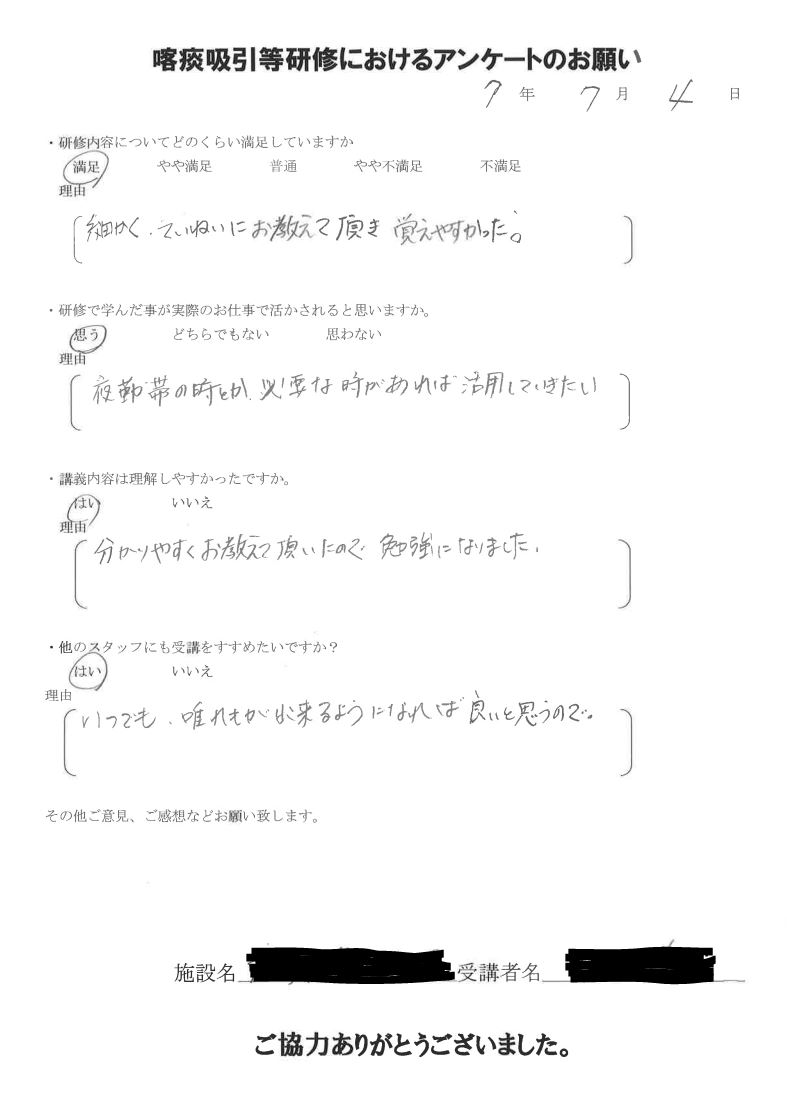 喀痰吸引等研修におけるアンケートのお願い
7 年 7 月 4 日
・研修内容についてどのくらい満足していますか
満足 やや満足 普通 やや不満足 不満足
理由
細かく、ていねいにお教えて頂き 覚えやすかった。
・研修で学んだ事が実際のお仕事で活かされると思いますか。
思う どちらでもない 思わない
理由
夜勤帯の時とか、必要な時があれば活用していきたい
・講義内容は理解しやすかったですか。
はい いいえ
理由
分かりやすくお教えて頂いたので 勉強になりました。
・他のスタッフにも受講をすすめたいですか?
はい いいえ
理由
いつでも、唯れもが出来るようになれば良いと思うので。
その他ご意見、ご感想などお願い致します。
施設名 受講者名
ご協力ありがとうございました。